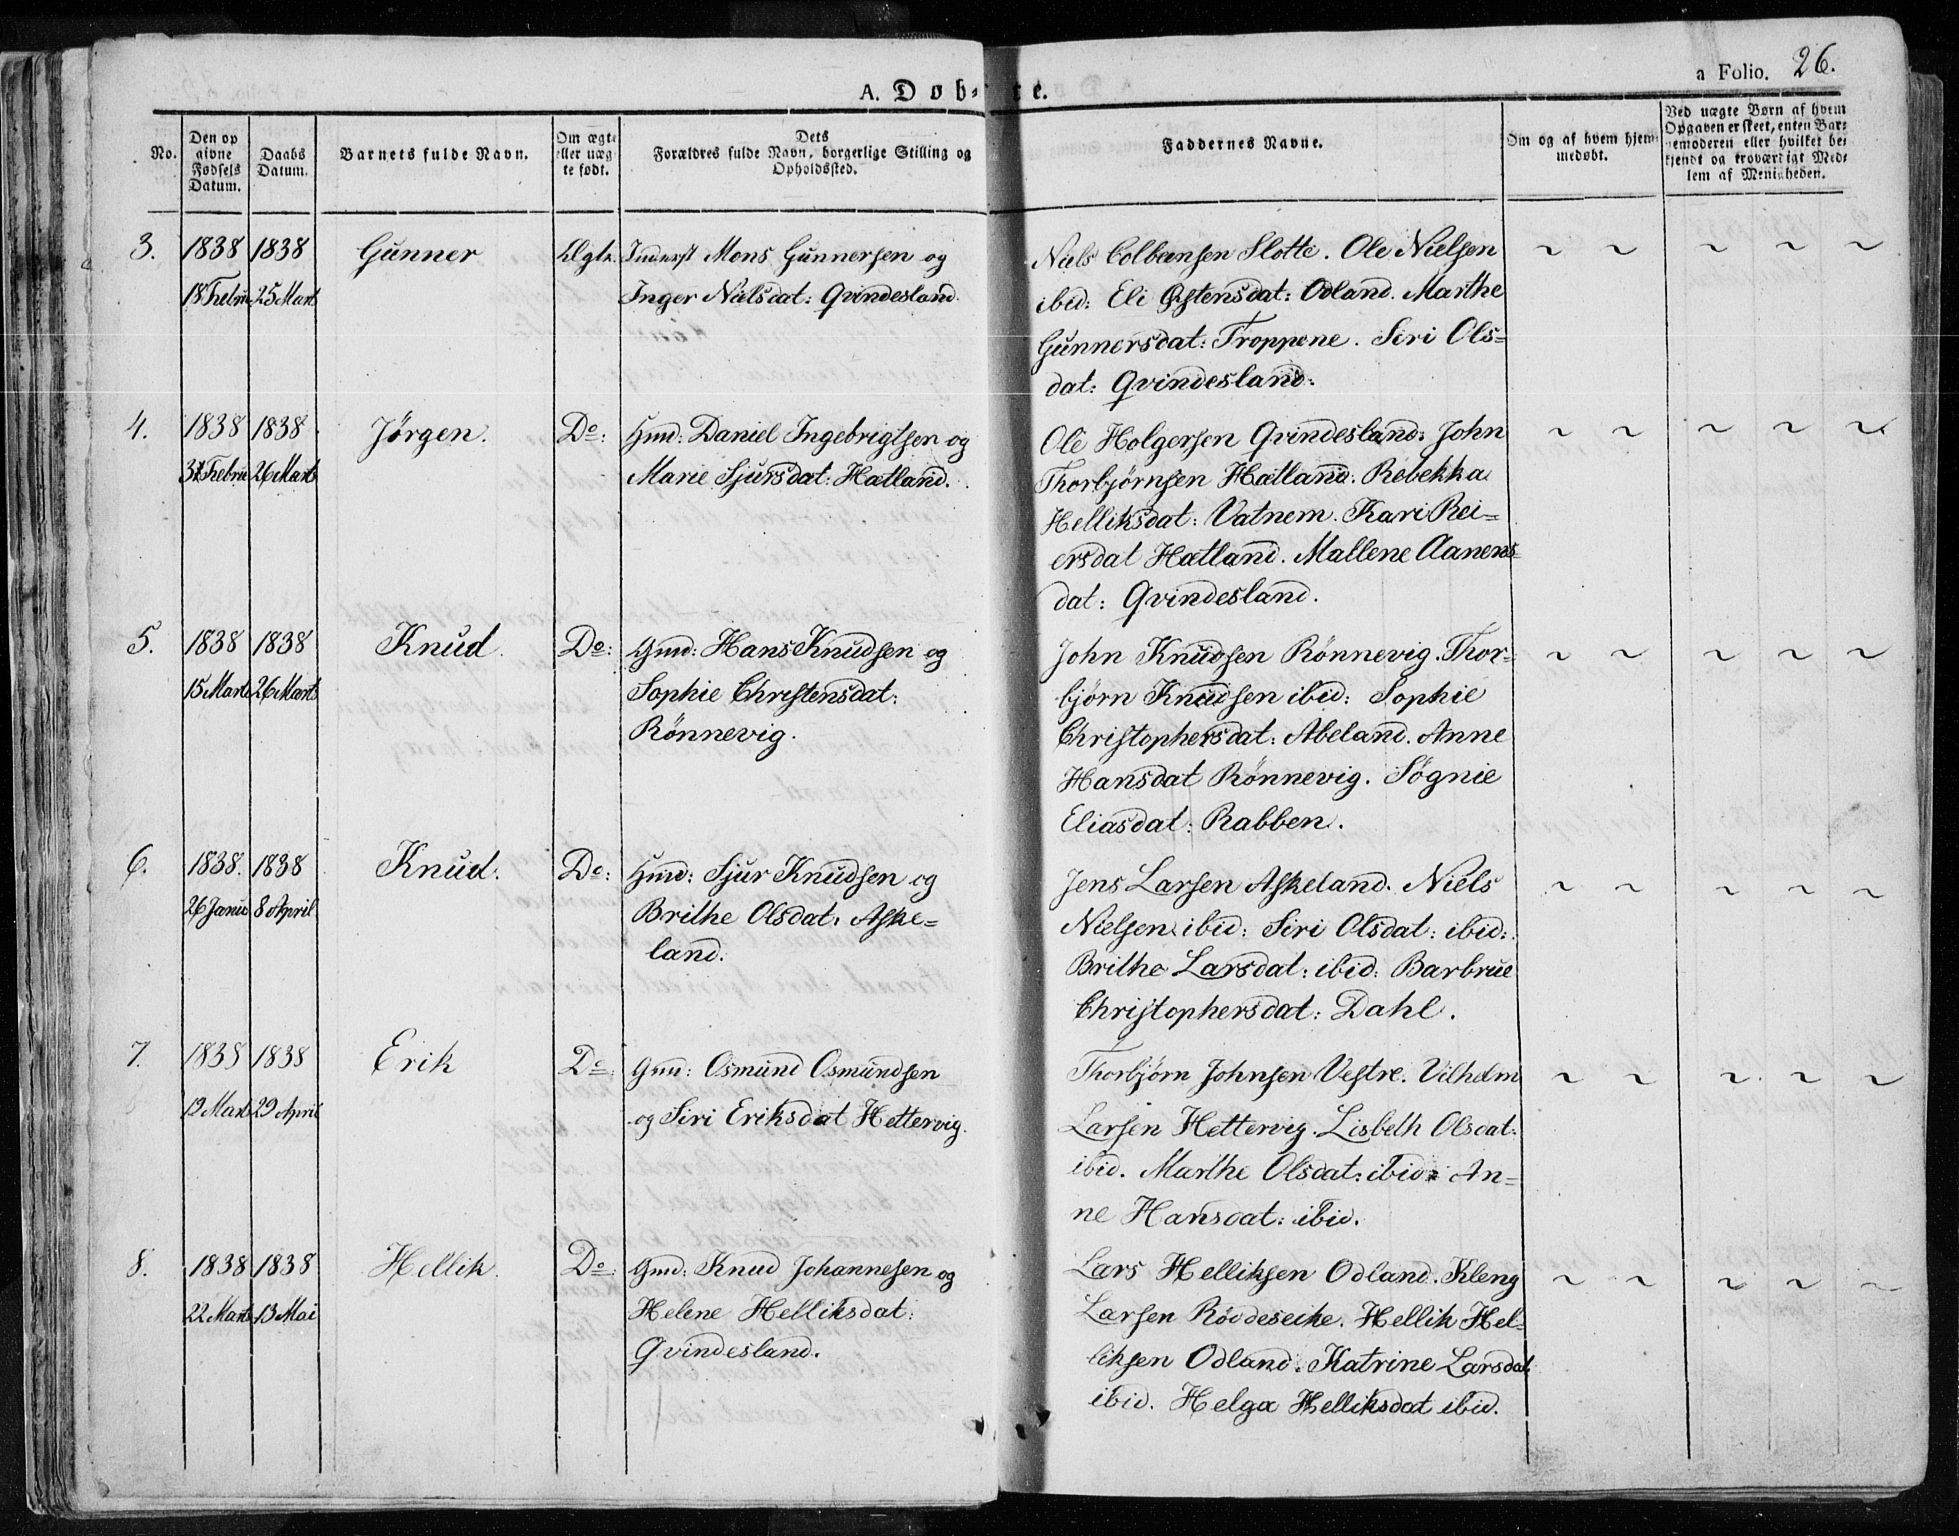 a Folio. 26.
A. Døbte.
No.
Den opgivne Fødsels Datum.
Daabs Datum.
Barnets fulde Navn.
Om ægte eller uægte født.
Dets Forældres fulde Navn, borgerlige Stilling og Opholdssted.
Faddernes Navne.
Om og af hvem hjemmedøbt.
Ved uægte Børn af hvem Opgaven er skeet, enten Barnemoderen eller hvilket bekjendt og troværdigt Medlem af Menigheden.
3.
1838
18 Febru
1838
25 Marts
Gunner
Ægte
Inderst Mons Gunnersen og
Inger Nielsdat: Qvindesland.
Niels Colbensen Slotte. Ole Nielsen
ibid: Eli Østensdat: Odland. Marthe
Gunnersdat: Troppene. Siri Ols-
dat: Qvindesland.
4.
1838
Febru
1838
26 Marts
Jørgen.
Do:
Hmd: Daniel Ingebrigtsen og
Marie Sjursdat: Hatland.
Ole Holgersen Qvindesland: John
Thorbjørnsen Hatland. Rebekka
Helliksdat: Vatnem. Kari Rei-
ersdat Hatland. Mallene Aanens-
dat: Qvindesland.
5.
1838
15 Marts
1838
26 Marts
Knud.
Do:
Gmd: Hans Knudsen og
Sophie Christensdat:
Rönnevig.
John Knudsen Rönnevig. Thor-
bjørn Knudsen ibid: Sophie
Christophersdat: Abeland. Anne
Hansdat Rönnevig. Søgnie
Eliasdat: Rabben.
6.
1838.
26 Janu
1838
8 April
Knud.
Do:
Hmd: Sjur Knudsen og
Brithe Olsdat: Aske-
land.
Jens Larsen Askeland. Niels
Nielsen ibid: Siri Olsdat: ibid:
Brithe Larsdat: ibid: Barbrue
Christophersdat: Dahl.
7.
1838
19 Marts
1838
29 April
Erik
Do:
Gmd: Osmund Osmundsen
og Siri Eriksdat Hettervig.
Thorbjørn Johnsen Vestre. Vilhelm
Larsen Hettervig. Lisbeth Olsdat:
ibid. Marthe Olsdat: ibid: An-
ne Hansdat: ibid.
8.
1838
22 Marts
1838
13 Mai
Hellik.
Do:
Gmd: Knud Johannesen og
Helene Helliksdat:
Qvindesland.
Lars Helliksen Odland. Kleng
Larsen Röddeseike. Hellik Hel-
liksen Odland. Katrine Larsdat.
ibid. Helga Helliksdat ibid.